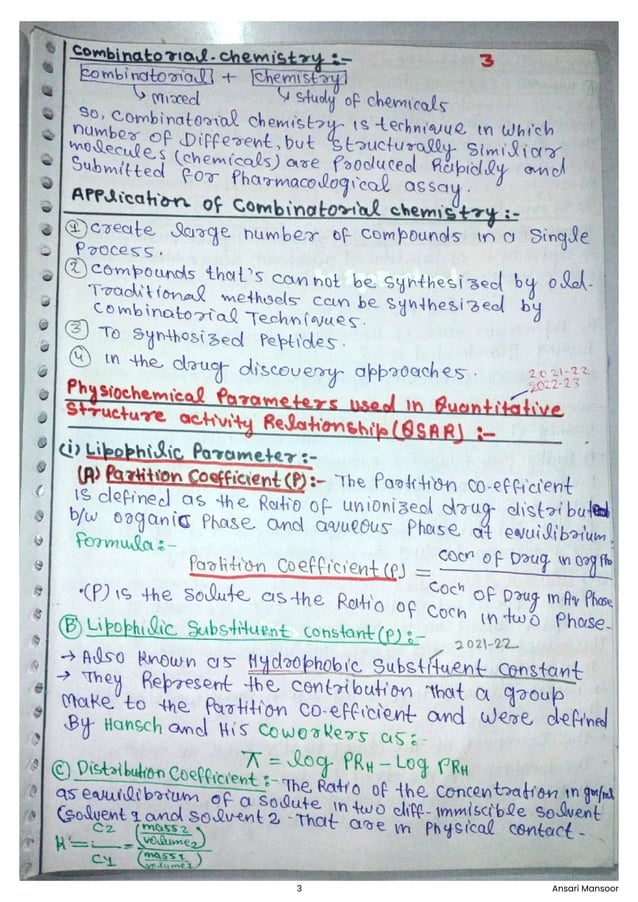 Combinatorial chemistry :-
3
Combinatorial + chemistry
↳ mixed ↳ study of chemicals
So, Combinatorial chemistry is technique in which
number of Different, but Structurally Similiar
molecules (chemicals) are Produced Rapidly and
Submitted for Pharmacological assay.
Application of Combinatorial chemistry :-
① create large number of compounds in a Single
Process.
② compounds that's cannot be synthesized by old-
Traditional methods can be synthesized by
Combinatorial Techniques.
③ To synthosized Peptides.
④ in the drug discovery approaches.
2021-22
2022-23
Physiochemical Parameters used in Quantitative
Structure activity Relationship (QSAR) :-
(i) Lipophilic Parameter :-
(A) Partition Coefficient (P) :- The Partition co-efficient
is defined as the Ratio of unionized drug distributed
b/w organic Phase and aqueous Phase at equilibrium.
Formula :-
Partition Coefficient (P) = Cocn of Drug in org Pha
Coch of Drug in Aq Phase
•(P) is the solute as the Ratio of Cocn in two Phase-
(B) Lipophilic Substituent constant (P) :-
2021-22
→ Also Known as Hydrophobic Substituent constant
→ They Represent the contribution That a group
make to the Partition co-efficient and were defined
By Hansch and His coworkers as :-
π = log PRH - Log PRH
(C) Distribution Coefficient :- The Ratio of the concentration in gm/ml
as equilibrium of a solute in two diff- immiscible solvent
(solvent 1 and solvent 2 - That are in Physical contact -
K' = C2 / C1 = (mass2 / volume2) / (mass1 / volume1)
3
Ansari Mansoor